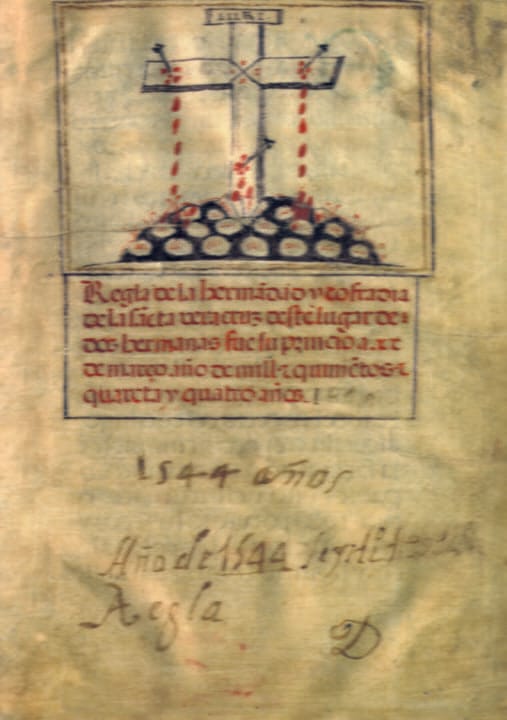 INRI
Regla de la hermãdad y cofradia
de la sãcta vera cruz deste lugar de
dos hermanas fue su principio a.xx
de março año de mill.z quiniẽtos.z
quarẽta y quatro años.
1544 años
Año de 1544
Regla
D